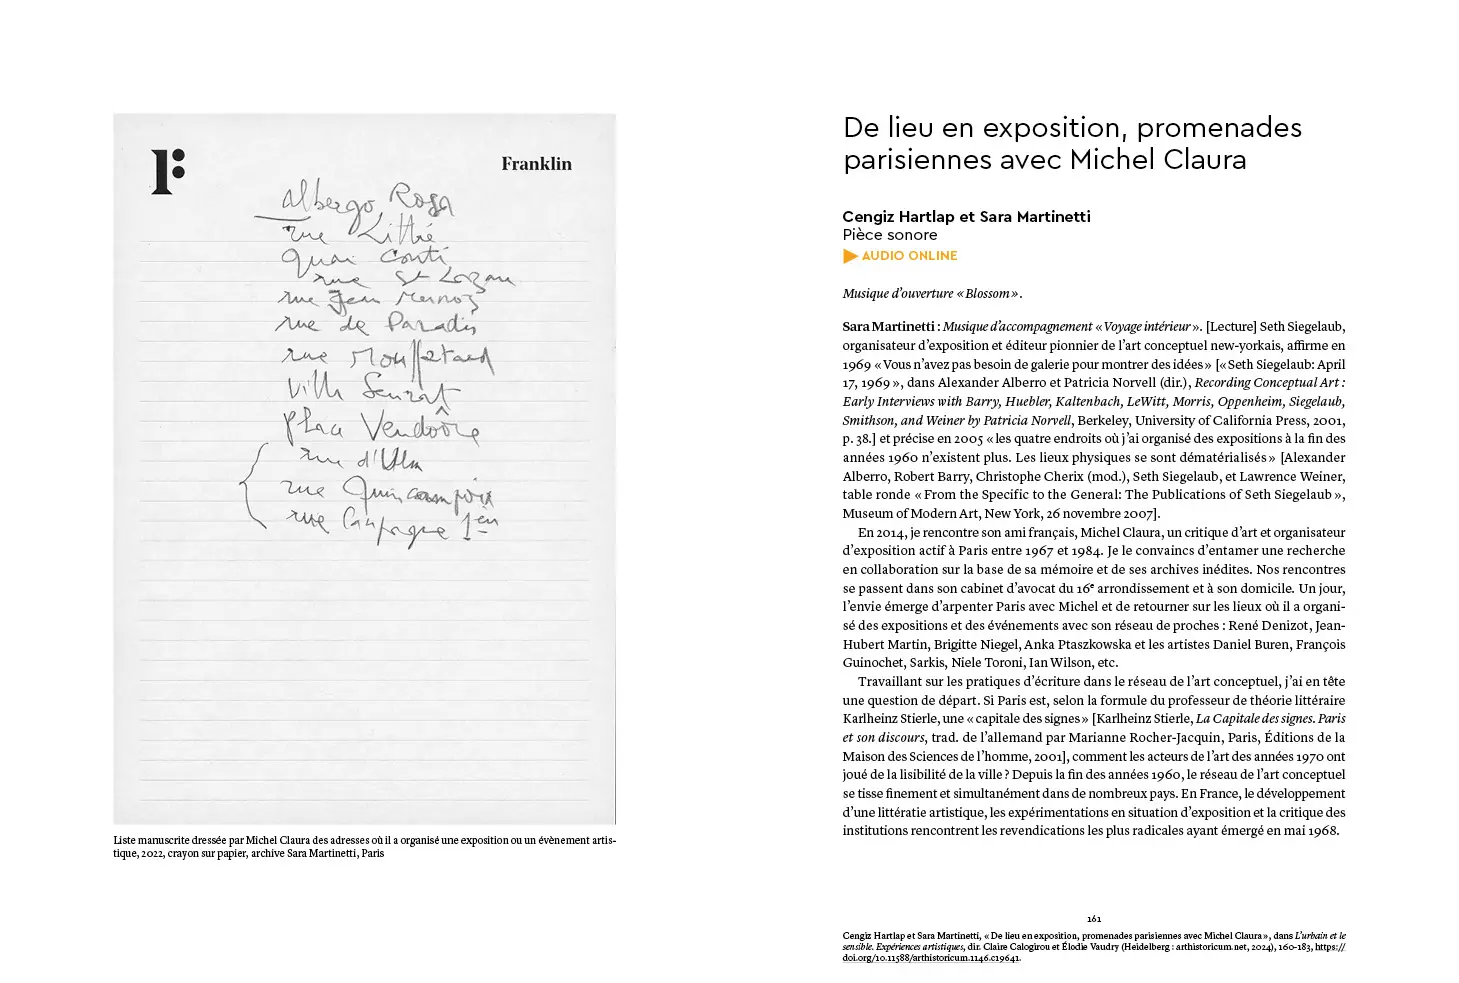 F:
Franklin
albergo Rosa
rue Littré
quai Conti
rue St Lazare
rue Jean Mermoz
rue de Paradis
rue Mouffetard
Villa Seurat
place Vendôme
rue d'Ulm
rue Quincampoix
rue Campagne 1ère
Liste manuscrite dressée par Michel Claura des adresses où il a organisé une exposition ou un évènement artis-
tique, 2022, crayon sur papier, archive Sara Martinetti, Paris
De lieu en exposition, promenades
parisiennes avec Michel Claura
Cengiz Hartlap et Sara Martinetti
Pièce sonore
▶ AUDIO ONLINE
Musique d’ouverture « Blossom ».
Sara Martinetti : Musique d’accompagnement « Voyage intérieur ». [Lecture] Seth Siegelaub,
organisateur d’exposition et éditeur pionnier de l’art conceptuel new-yorkais, affirme en
1969 « Vous n’avez pas besoin de galerie pour montrer des idées » [« Seth Siegelaub: April
17, 1969 », dans Alexander Alberro et Patricia Norvell (dir.), Recording Conceptual Art :
Early Interviews with Barry, Huebler, Kaltenbach, LeWitt, Morris, Oppenheim, Siegelaub,
Smithson, and Weiner by Patricia Norvell, Berkeley, University of California Press, 2001,
p. 38.] et précise en 2005 « les quatre endroits où j’ai organisé des expositions à la fin des
années 1960 n’existent plus. Les lieux physiques se sont dématérialisés » [Alexander
Alberro, Robert Barry, Christophe Cherix (mod.), Seth Siegelaub, et Lawrence Weiner,
table ronde « From the Specific to the General: The Publications of Seth Siegelaub »,
Museum of Modern Art, New York, 26 novembre 2007].
En 2014, je rencontre son ami français, Michel Claura, un critique d’art et organisateur
d’exposition actif à Paris entre 1967 et 1984. Je le convaincs d’entamer une recherche
en collaboration sur la base de sa mémoire et de ses archives inédites. Nos rencontres
se passent dans son cabinet d’avocat du 16e arrondissement et à son domicile. Un jour,
l’envie émerge d’arpenter Paris avec Michel et de retourner sur les lieux où il a organi-
sé des expositions et des événements avec son réseau de proches : René Denizot, Jean-
Hubert Martin, Brigitte Niegel, Anka Ptaszkowska et les artistes Daniel Buren, François
Guinochet, Sarkis, Niele Toroni, Ian Wilson, etc.
Travaillant sur les pratiques d’écriture dans le réseau de l’art conceptuel, j’ai en tête
une question de départ. Si Paris est, selon la formule du professeur de théorie littéraire
Karlheinz Stierle, une « capitale des signes » [Karlheinz Stierle, La Capitale des signes. Paris
et son discours, trad. de l’allemand par Marianne Rocher-Jacquin, Paris, Éditions de la
Maison des Sciences de l’homme, 2001], comment les acteurs de l’art des années 1970 ont
joué de la lisibilité de la ville ? Depuis la fin des années 1960, le réseau de l’art conceptuel
se tisse finement et simultanément dans de nombreux pays. En France, le développement
d’une littératie artistique, les expérimentations en situation d’exposition et la critique des
institutions rencontrent les revendications les plus radicales ayant émergé en mai 1968.
161
Cengiz Hartlap et Sara Martinetti, « De lieu en exposition, promenades parisiennes avec Michel Claura », dans L’urbain et le
sensible. Expériences artistiques, dir. Claire Calogirou et Élodie Vaudry (Heidelberg : arthistoricum.net, 2024), 160-183, https://
doi.org/10.11588/arthistoricum.1146.c19641.